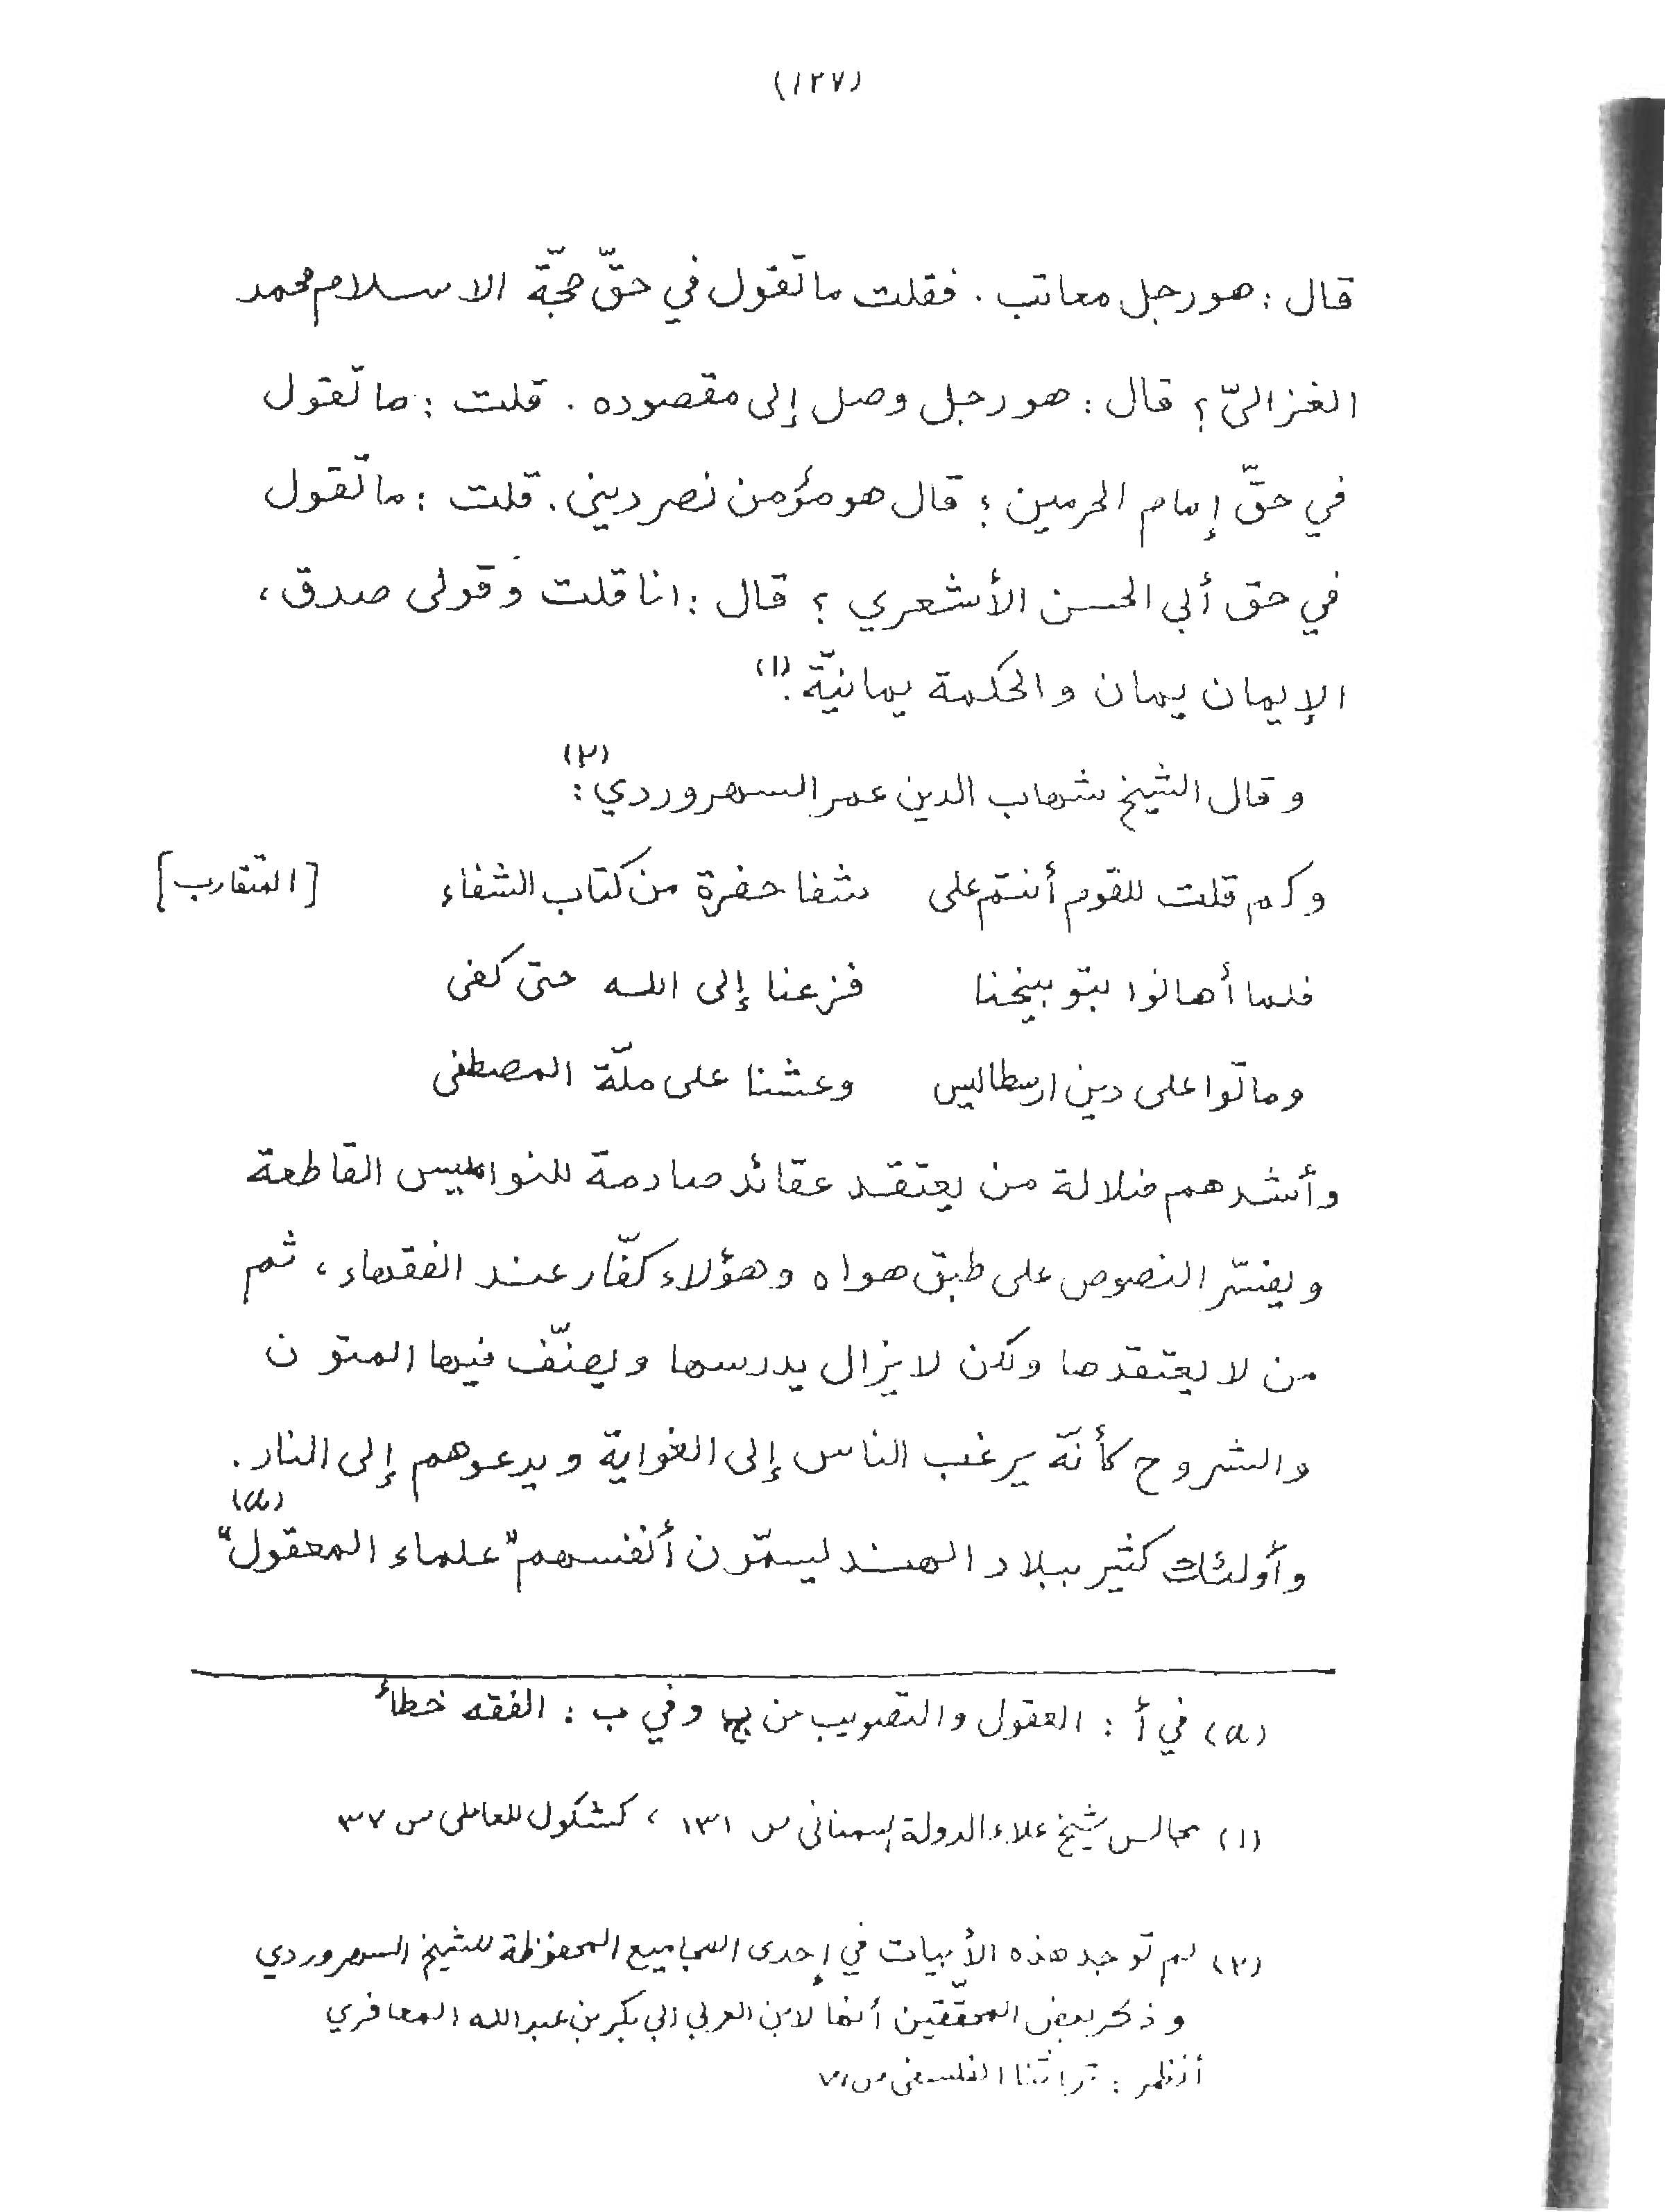 (١٢٧)
قال : هو رجل معاتب . فقلت ما تقول في حقّ حجّة الاسلام محمد
الغزاليّ ؟ قال : هو رجل وصل إلى مقصوده . قلت : ما تقول
في حقّ إمام الحرمين ؟ قال هو مؤمن نصر ديني . قلت : ما تقول
في حق أبي الحسن الأشعري ؟ قال : انا قلت وقولى صدق ،
الإيمان يمان والحكمة يمانيّة .(١)
وقال الشيخ شهاب الدين عمر السهروردي :(٢)
وكم قلت للقوم أنتم على شفا حفرة من كتاب الشفاء [المتقارب]
فلما أهانوا بتوبيخنا فزعنا إلى الله حتى كفى
وماتوا على دين ارسطاليس وعشنا على ملّة المصطفى
وأشدهم ضلالة من يعتقد عقائد صادمة للنواميس القاطعة
ويفسّر النصوص على طبق هواه وهؤلاء كفّار عند الفقهاء ، ثم
من لا يعتقدها ولكن لا يزال يدرسها ويصنّف فيها المتون
والشروح كأنّه يرغب الناس إلى الغواية ويدعوهم إلى النار .
وأولئك كثير ببلاد الهند ليسمّون أنفسهم "علماء المعقول"(a)
(a) في أ : العقول والتصويب من وفي ب : الفقه خطأ
(١) مجالس شيخ علاء الدولة سمنانى ص ١٣١ ، كشكول للعاملى ص ٣٧
(٢) لم توجد هذه الأبيات في إحدى المجاميع المحفوظة للشيخ السهروردي
وذكر بعض المحقّقين أنها لابن العربي ابي بكر بن عبد الله المعافري
أنظر : تراثنا الفلسفى ص